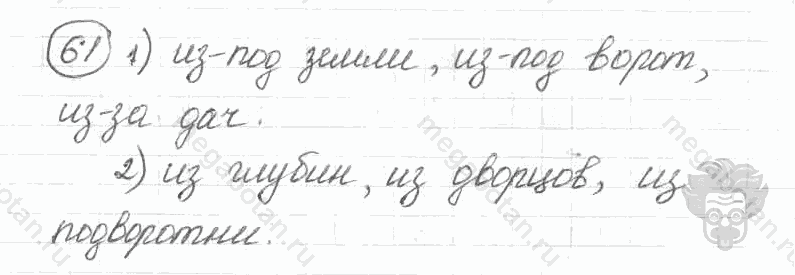 61 1) из-под земли, из-под ворот,
из-за дач.
2) из глубин, из дворцов, из
подворотни.
megabotan.ru
megabotan.ru
megabotan.ru
megabotan.ru